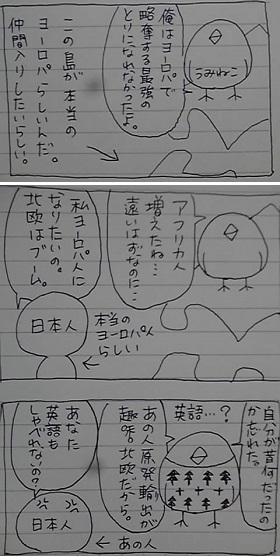 俺はヨーロパで
略奪する最強の
とりになれなかったよ。
うみねこ
この島が本当の
ヨーロパらしいんだ。
仲間入りしたいらしい。
アフリカ人
増えたね…
遠いはずなのに…
私ヨーロパ人に
なりたいの。
北欧はブーム。
日本人
本当の
ヨーロパ人
らしい
自分が昔何だったの
か忘れた。
英語…?
あの人原発輸出が
趣味。北欧だから。
あなた
英語も
しゃべれないの?
日本人
あの人